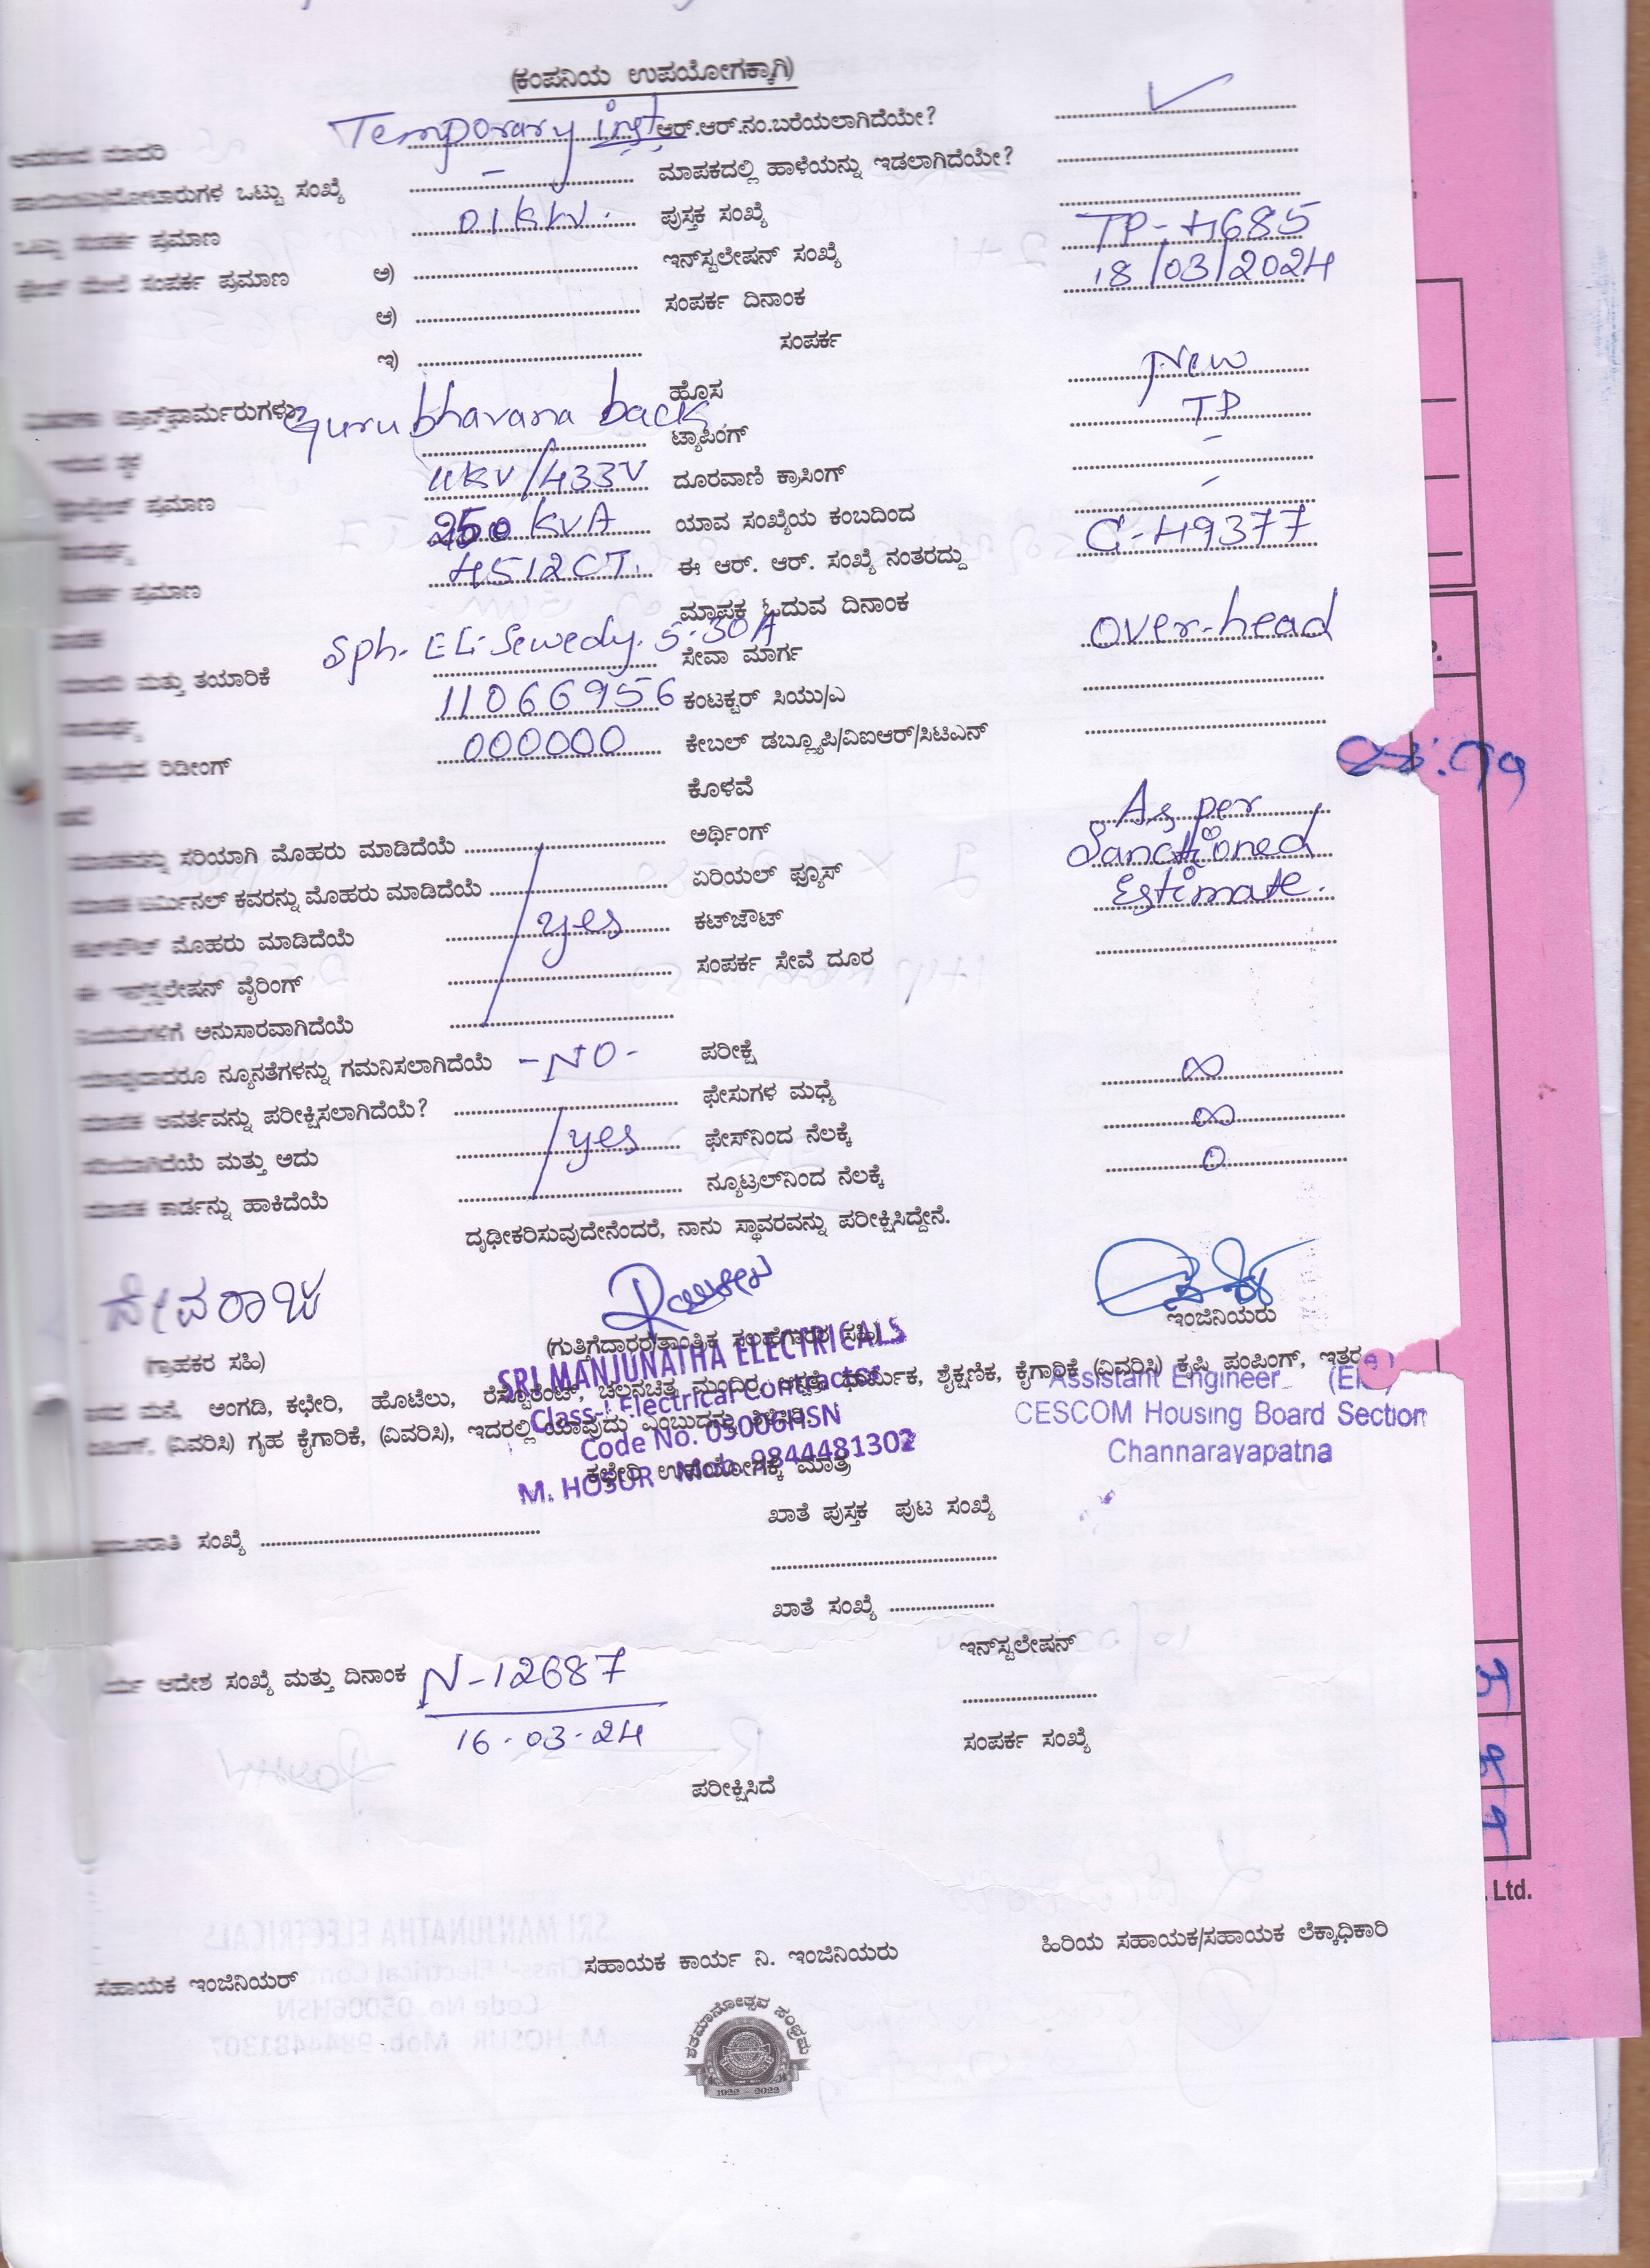 (ಕಂಪನಿಯ ಉಪಯೋಗಕ್ಕಾಗಿ)
ಮಾದರಿ Temporary inst ಆರ್.ಆರ್.ನಂ.ಬರೆಯಲಾಗಿದೆಯೇ? ✓
ಒಟ್ಟು ಸಂಖ್ಯೆ - ಮಾಪಕದಲ್ಲಿ ಹಾಳೆಯನ್ನು ಇಡಲಾಗಿದೆಯೇ?
ಒಟ್ಟು ಸಂಪರ್ಕ ಪ್ರಮಾಣ 01 KW. ಪುಸ್ತಕ ಸಂಖ್ಯೆ
ಮೇಲೆ ಸಂಪರ್ಕ ಪ್ರಮಾಣ ಅ) ಇನ್‌ಸ್ಟಲೇಷನ್ ಸಂಖ್ಯೆ TP-4685
ಆ) ಸಂಪರ್ಕ ದಿನಾಂಕ 18/03/2024
ಇ) ಸಂಪರ್ಕ
ಟ್ರಾನ್ಸ್‌ಫಾರ್ಮರುಗಳು gurubhavana back ಹೊಸ New
ಟ್ಯಾಪಿಂಗ್ TP
11KV/433V ದೂರವಾಣಿ ಕ್ರಾಸಿಂಗ್ -
ಪ್ರಮಾಣ 250 KVA ಯಾವ ಸಂಖ್ಯೆಯ ಕಂಬದಿಂದ -
4512CT. ಈ ಆರ್. ಆರ್. ಸಂಖ್ಯೆ ನಂತರದ್ದು C-49377
ಸಂಪರ್ಕ ಪ್ರಮಾಣ ಮಾಪಕ ಓದುವ ದಿನಾಂಕ
Sph. El-Sewedy. 5-30A ಸೇವಾ ಮಾರ್ಗ Over-head
ಮತ್ತು ತಯಾರಿಕೆ 11066956 ಕಂಟಕ್ಟರ್ ಸಿಯು/ಎ
ರಿಡೀಂಗ್ 000000 ಕೇಬಲ್ ಡಬ್ಲ್ಯೂಪಿ/ವಿಐಆರ್/ಸಿಟಿಎನ್
ಕೊಳವೆ As per
ಸರಿಯಾಗಿ ಮೊಹರು ಮಾಡಿದೆಯೆ ಅರ್ಥಿಂಗ್ Sanctioned
ಟರ್ಮಿನಲ್ ಕವರನ್ನು ಮೊಹರು ಮಾಡಿದೆಯೆ ಏರಿಯಲ್ ಫ್ಯೂಸ್ Estimate.
ಮೊಹರು ಮಾಡಿದೆಯೆ yes ಕಟ್‌ಜೌಟ್
ಈ ಇನ್‌ಸ್ಟಲೇಷನ್ ವೈರಿಂಗ್ ಸಂಪರ್ಕ ಸೇವೆ ದೂರ
ನಿಯಮಗಳಿಗೆ ಅನುಸಾರವಾಗಿದೆಯೆ
ಯಾವುದಾದರೂ ನ್ಯೂನತೆಗಳನ್ನು ಗಮನಿಸಲಾಗಿದೆಯೆ -NO- ಪರೀಕ್ಷೆ
ಮಾಪಕ ಆವರ್ತವನ್ನು ಪರೀಕ್ಷಿಸಲಾಗಿದೆಯೆ? ಫೇಸುಗಳ ಮಧ್ಯೆ ∞
ಸರಿಯಾಗಿದೆಯೆ ಮತ್ತು ಅದು yes ಫೇಸ್‌ನಿಂದ ನೆಲಕ್ಕೆ ∞
ಮಾಪಕ ಕಾರ್ಡನ್ನು ಹಾಕಿದೆಯೆ ನ್ಯೂಟ್ರಲ್‌ನಿಂದ ನೆಲಕ್ಕೆ 0
ದೃಢೀಕರಿಸುವುದೇನೆಂದರೆ, ನಾನು ಸ್ಥಾವರವನ್ನು ಪರೀಕ್ಷಿಸಿದ್ದೇನೆ.
ಇಂಜಿನಿಯರು
(ಗ್ರಾಹಕರ ಸಹಿ) (ಗುತ್ತಿಗೆದಾರರ/ತಾಂತ್ರಿಕ ಸಲಹೆಗಾರರ ಸಹಿ)
SRI MANJUNATHA ELECTRICALS
Class-I Electrical Contractor
Code No. 05006HSN
M. HOSUR Mob. 9844481302
Assistant Engineer (Ele)
CESCOM Housing Board Section
Channarayapatna
ಮನೆ, ಅಂಗಡಿ, ಕಛೇರಿ, ಹೊಟೆಲು, ರೆಸ್ಟೊರೆಂಟ್, ಚಲನಚಿತ್ರ ಮಂದಿರ, ಆಸ್ಪತ್ರೆ, ಧಾರ್ಮಿಕ, ಶೈಕ್ಷಣಿಕ, ಕೈಗಾರಿಕೆ (ವಿವರಿಸಿ) ಕೃಷಿ ಪಂಪಿಂಗ್, ಇತರ
(ವಿವರಿಸಿ) ಗೃಹ ಕೈಗಾರಿಕೆ, (ವಿವರಿಸಿ), ಇದರಲ್ಲಿ ಯಾವುದು ಎಂಬುದನ್ನು ತಿಳಿಸಿರಿ.
ಕಛೇರಿ ಉಪಯೋಗಕ್ಕೆ ಮಾತ್ರ
ಖಾತೆ ಪುಸ್ತಕ ಪುಟ ಸಂಖ್ಯೆ
ಸಂಖ್ಯೆ
ಖಾತೆ ಸಂಖ್ಯೆ
ಇನ್‌ಸ್ಟಲೇಷನ್
ಆದೇಶ ಸಂಖ್ಯೆ ಮತ್ತು ದಿನಾಂಕ N-12687
16-03-24
ಸಂಪರ್ಕ ಸಂಖ್ಯೆ
ಪರೀಕ್ಷಿಸಿದೆ
Ltd.
ಸಹಾಯಕ ಇಂಜಿನಿಯರ್ ಸಹಾಯಕ ಕಾರ್ಯ ನಿ. ಇಂಜಿನಿಯರು ಹಿರಿಯ ಸಹಾಯಕ/ಸಹಾಯಕ ಲೆಕ್ಕಾಧಿಕಾರಿ
ಶತಮಾನೋತ್ಸವ ಸಂಭ್ರಮ
1922 - 2022